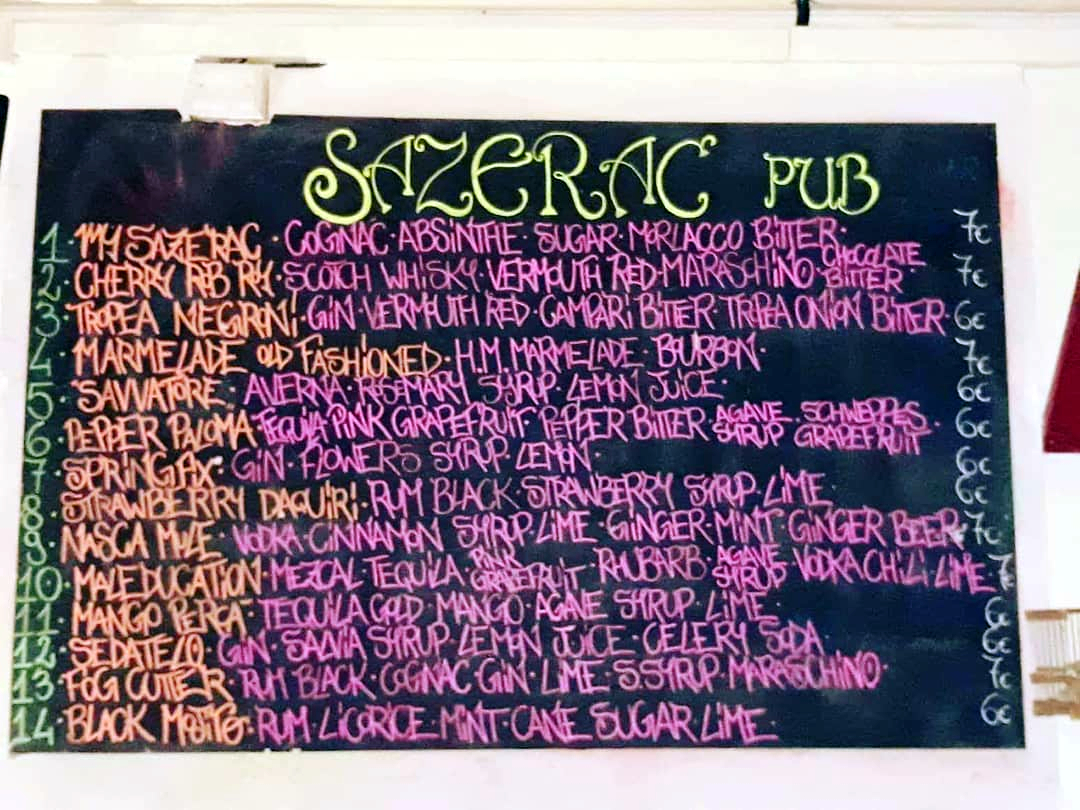 SAZERAC PUB
1 · MY SAZERAC · COGNAC · ABSINTHE · SUGAR · MORLACCO BITTER · 7€
2 · CHERRY ROB ROY · SCOTCH WHISKY · VERMOUTH RED · MARASCHINO · CHOCOLATE BITTER 7€
3 · TROPEA NEGRONI · GIN · VERMOUTH RED · CAMPARI BITTER · TROPEA ONION BITTER · 6€
4 · MARMELADE OLD FASHIONED · H.M. MARMELADE · BOURBON · 7€
5 · SAVVATORE · AVERNA · ROSEMARY SYRUP · LEMON JUICE · 6€
6 · PEPPER PALOMA · TEQUILA · PINK GRAPEFRUIT · PEPPER BITTER · AGAVE SYRUP · SCHWEPPES GRAPEFRUIT 6€
7 · SPRING · GIN · FLOWERS SYRUP · LEMON · 6€
8 · STRAWBERRY DAQUIRI · RUM BLACK · STRAWBERRY SYRUP · LIME 6€
9 · NASCA MULE · VODKA · CINNAMON SYRUP · LIME · GINGER · MINT · GINGER BEER · 7€
10 · MALEDUCATION · MEZCAL TEQUILA · PINK GRAPEFRUIT · RHUBARB · AGAVE SYRUP · VODKA CHILI · LIME 7€
11 · MANGO · TEQUILA GOLD · MANGO · AGAVE SYRUP · LIME · 6€
12 · SEDATELO · GIN · SALVIA SYRUP · LEMON JUICE · CELERY SODA 6€
13 · FOG CUTTER · RUM BLACK · COGNAC · GIN · LIME · S.SYRUP · MARASCHINO · 7€
14 · BLACK MOJITO · RUM · LICORICE · MINT · CANE SUGAR · LIME · 6€